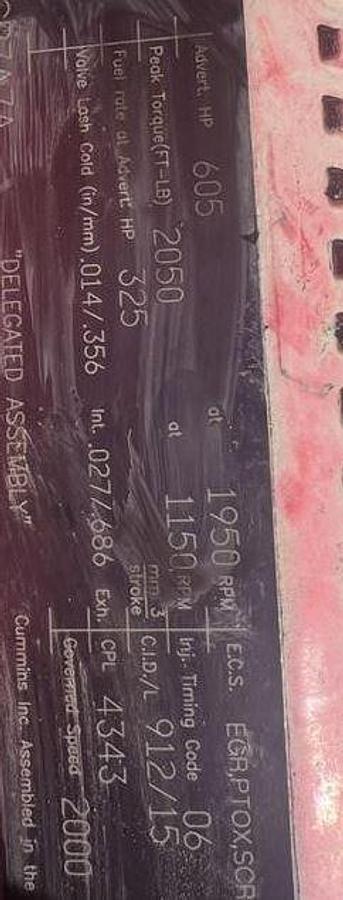 Advert. HP 605 at 1950 RPM E.C.S. EGR,PTOX,SCR
Peak Torque(FT-LB) 2050 at 1150 RPM Inj. Timing Code 06
Fuel rate at Advert. HP 325 mm 3 stroke C.I.D/L 912/15
Valve Lash Cold (in/mm) .014/.356 Int. .027/.686 Exh. CPL 4343
Governed Speed 2000
"DELEGATED ASSEMBLY" Cummins Inc. Assembled in the